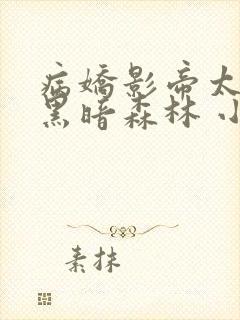 病嬌影帝太
黑暗森林 小
素抹